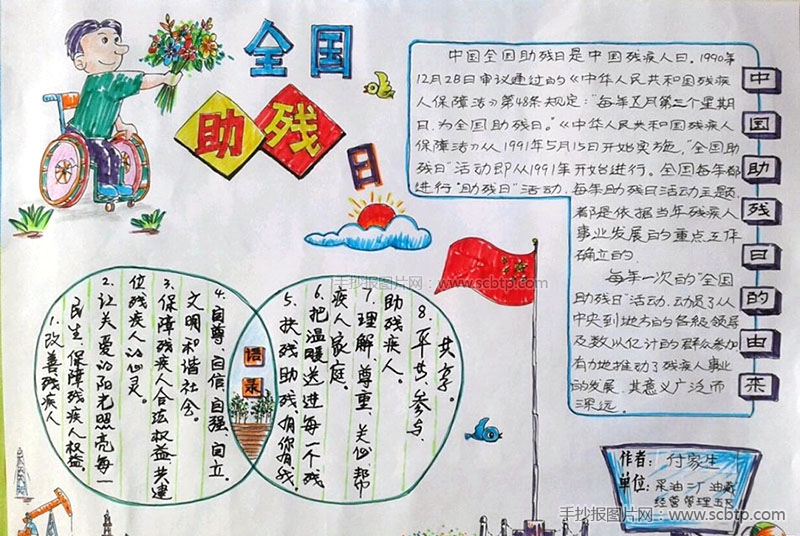 全国
助残
日
中国全国助残日是中国残疾人日。1990年
12月28日审议通过的《中华人民共和国残疾
人保障法》第48条规定:"每年五月第三个星期
日,为全国助残日。"《中华人民共和国残疾人
保障法》从1991年5月15日开始实施,"全国助
残日"活动即从1991年开始进行。全国每年都
进行"助残日"活动,每年助残日活动主题
都是依据当年残疾人
事业发展的重点工作
确立的.
每年一次的"全国
助残日"活动,动员了从
中央到地方的各级领导
及数以亿计的群众参加
有力地推动了残疾人事业
的发展,其意义广泛而
深远.
中国助残日的由来
手抄报图片网:www.scbtp.com
1.改善残疾人
民生,保障残疾人权益。
2.让关爱的阳光照亮每一
位残疾人的心灵。
3.保障残疾人合法权益,共建
文明和谐社会。
4.自尊 自信 自强 自立。
语录
5.扶残助残,有你有我。
6.把温暖送进每一个残
疾人家庭。
7.理解、尊重、关心、帮
助残疾人。
8.平共、参与、
共享。
作者:付家生
单位:采油二厂油藏
经营管理五区
手抄报图片网:www.scbtp.com